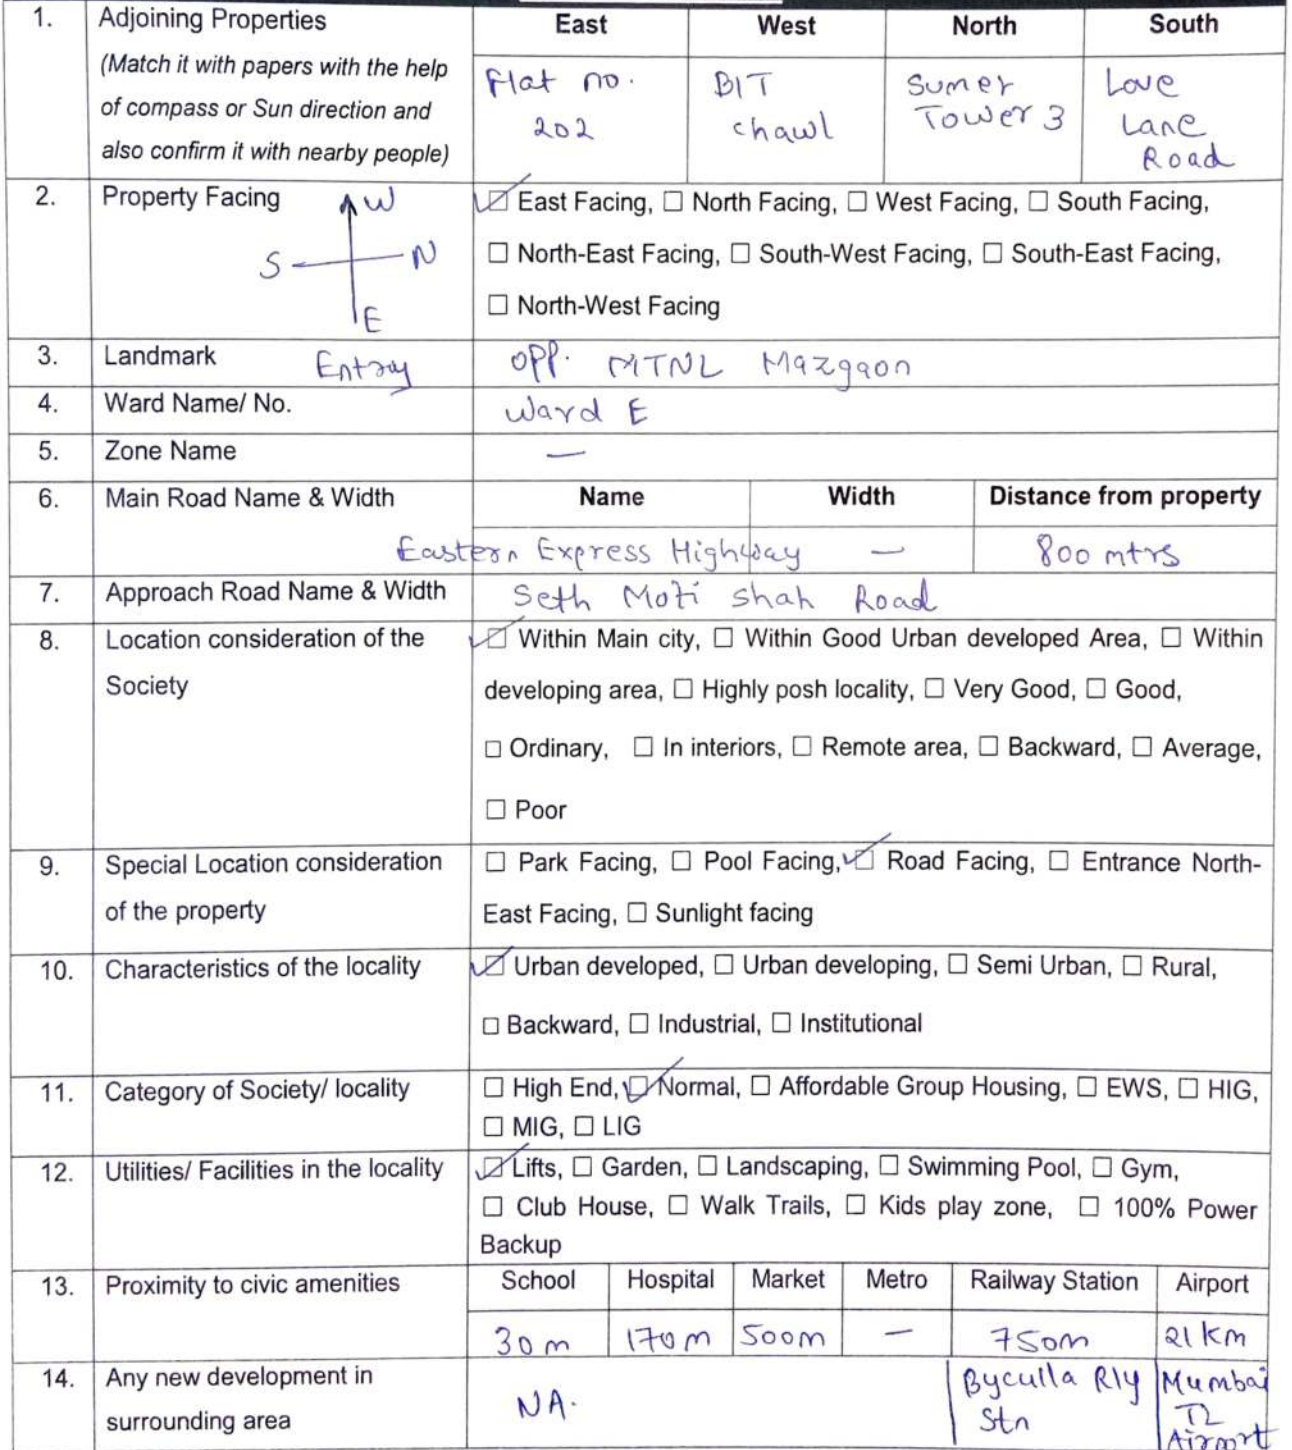 1. Adjoining Properties East West North South
(Match it with papers with the help of compass or Sun direction and also confirm it with nearby people)
Flat no. 202
BIT chawl
Sumer Tower 3
Love Lane Road
2. Property Facing
W
S N
E
Entry
☑ East Facing, ☐ North Facing, ☐ West Facing, ☐ South Facing,
☐ North-East Facing, ☐ South-West Facing, ☐ South-East Facing,
☐ North-West Facing
3. Landmark opp. MTNL Mazgaon
4. Ward Name/ No. Ward E
5. Zone Name —
6. Main Road Name & Width Name Width Distance from property
Eastern Express Highway — 800 mtrs
7. Approach Road Name & Width Seth Moti Shah Road
8. Location consideration of the Society
☑ Within Main city, ☐ Within Good Urban developed Area, ☐ Within
developing area, ☐ Highly posh locality, ☐ Very Good, ☐ Good,
☐ Ordinary, ☐ In interiors, ☐ Remote area, ☐ Backward, ☐ Average,
☐ Poor
9. Special Location consideration of the property
☐ Park Facing, ☐ Pool Facing, ☑ Road Facing, ☐ Entrance North-
East Facing, ☐ Sunlight facing
10. Characteristics of the locality
☑ Urban developed, ☐ Urban developing, ☐ Semi Urban, ☐ Rural,
☐ Backward, ☐ Industrial, ☐ Institutional
11. Category of Society/ locality
☐ High End, ☑ Normal, ☐ Affordable Group Housing, ☐ EWS, ☐ HIG,
☐ MIG, ☐ LIG
12. Utilities/ Facilities in the locality
☑ Lifts, ☐ Garden, ☐ Landscaping, ☐ Swimming Pool, ☐ Gym,
☐ Club House, ☐ Walk Trails, ☐ Kids play zone, ☐ 100% Power
Backup
13. Proximity to civic amenities School Hospital Market Metro Railway Station Airport
30 m 170 m 500m — 750m 21 Km
14. Any new development in surrounding area
NA.
Byculla Rly Stn
Mumbai T2 Airport